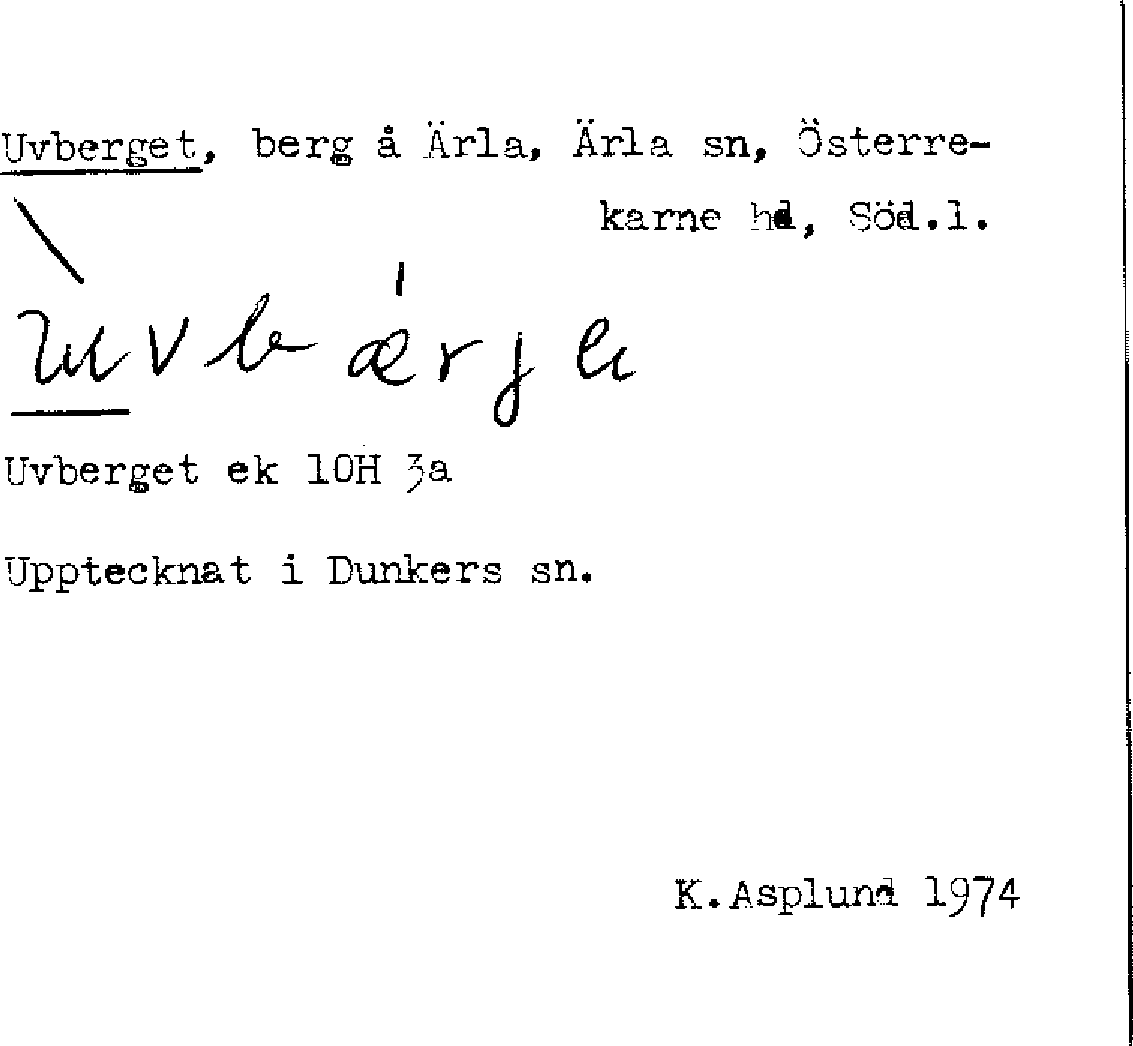 Uvberget, berg å Ärla, Ärla sn, Österre-
karne hd, Söd.l.
Uvberget ek 10H 3a
Upptecknat i Dunkers sn.
K.Asplund 1974